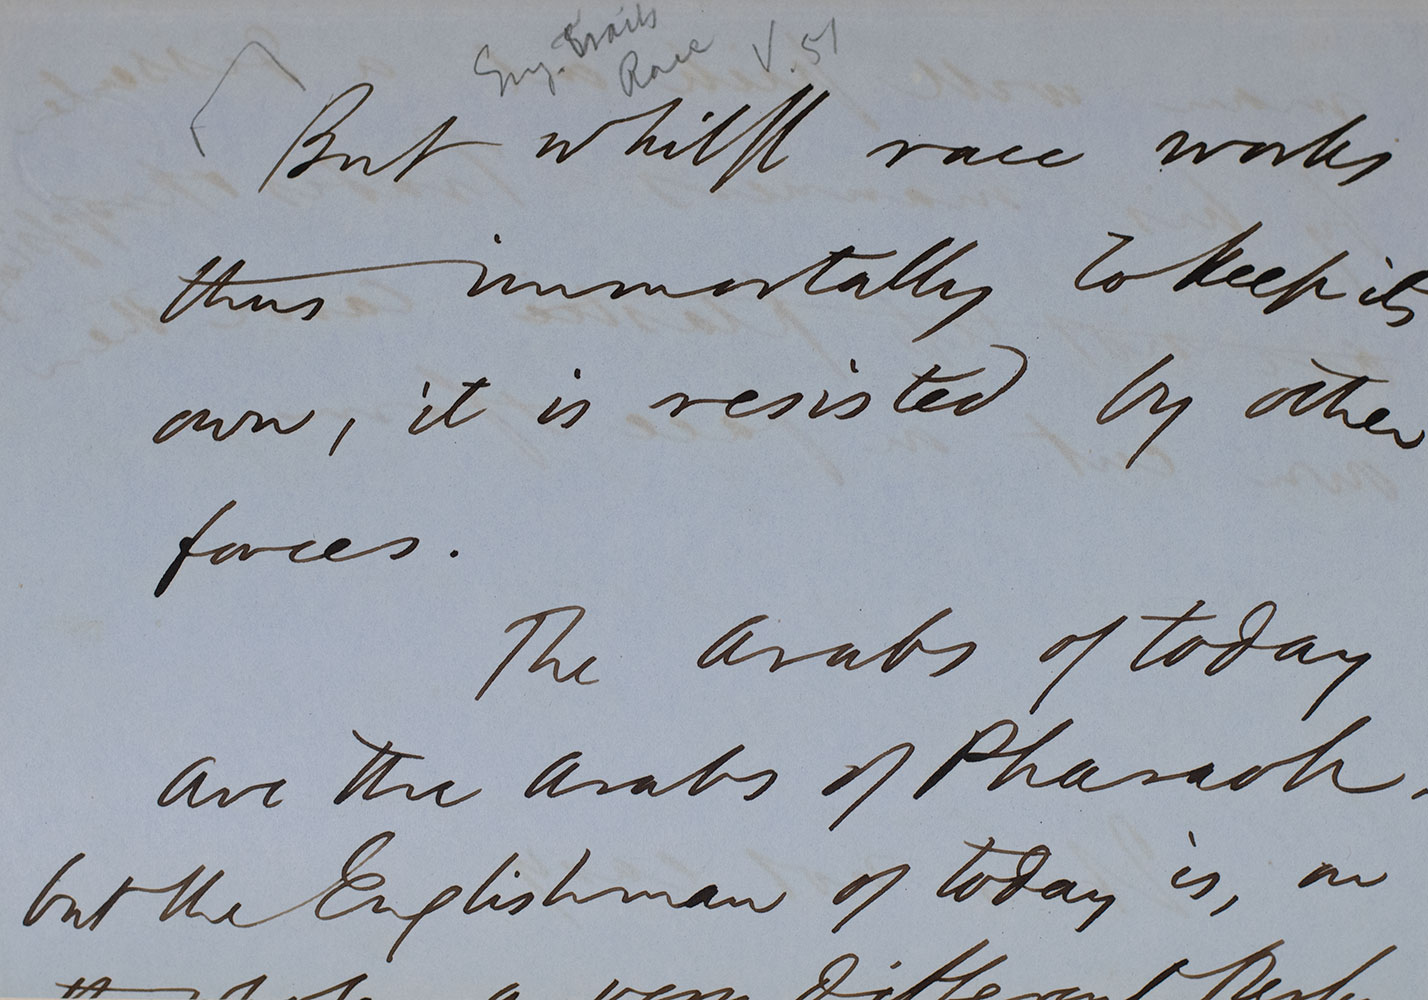 Eng. Traits
Race V. 51
But whilst race works
thus immortally to keep its
own, it is resisted by other
forces.
The Arabs of today
are the Arabs of Pharaoh,
but the Englishman of today is, on
a very different